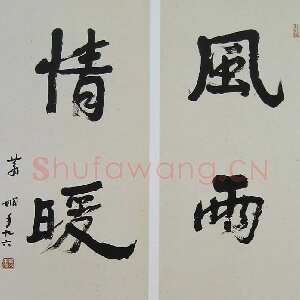 風雨
情暖
Shufawang.CN